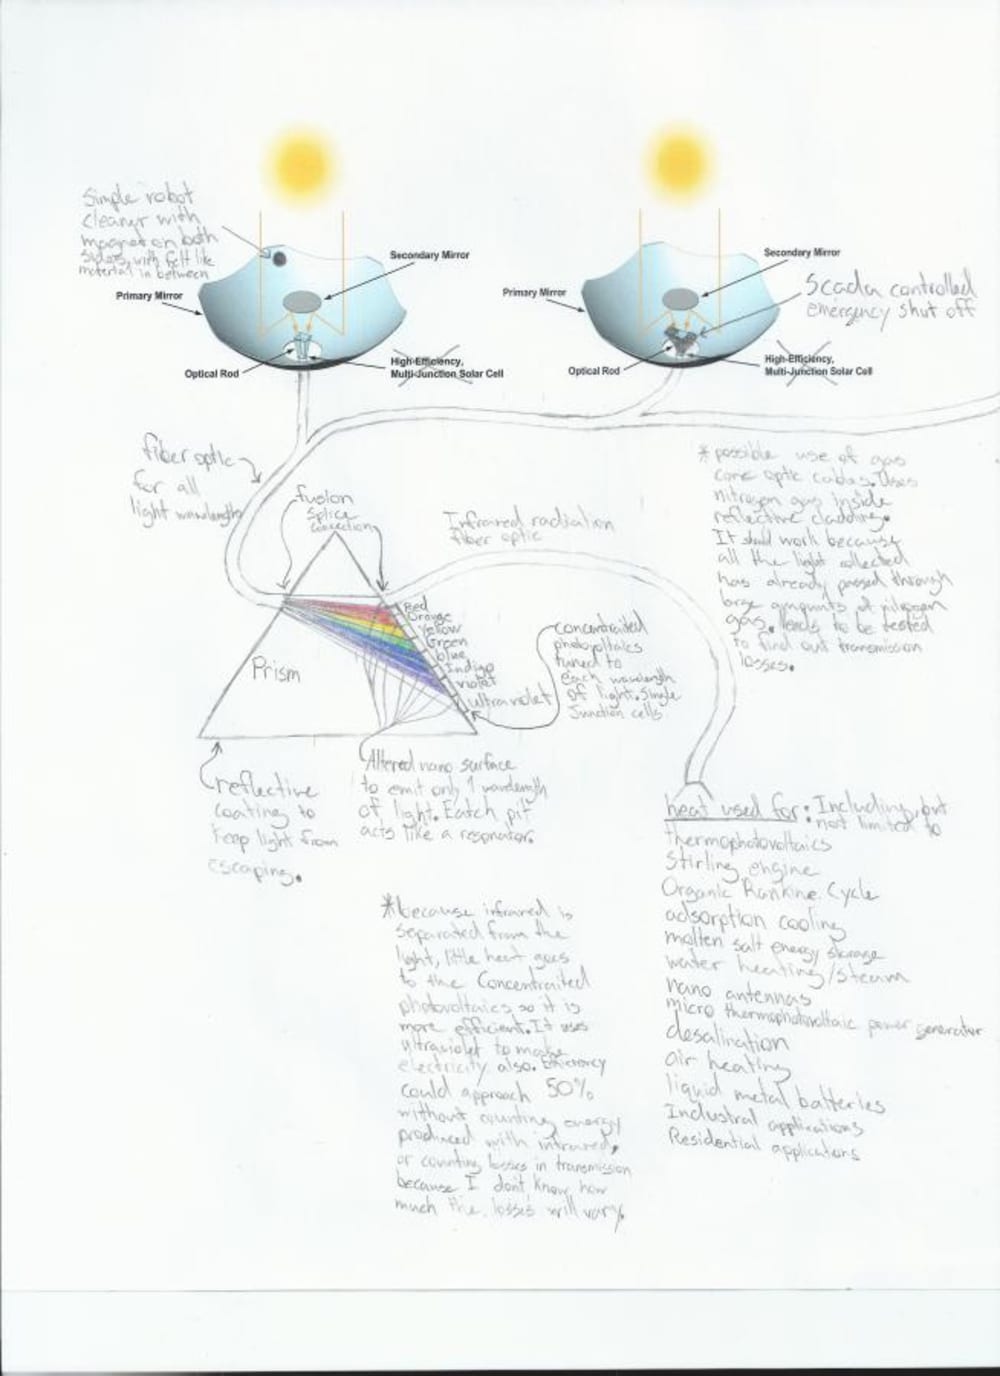 Simple robot
cleaner with
magnet on both
sides, with felt like
material in between
Secondary Mirror
Primary Mirror
Optical Rod
High-Efficiency,
Multi-Junction Solar Cell
Secondary Mirror
Primary Mirror
Scada controlled
emergency shut off
Optical Rod
High-Efficiency,
Multi-Junction Solar Cell
fiber optic
for all
light wavelengths
fusion
splice
connection
Infrared radiation
fiber optic
*possible use of gas
core optic cables. Uses
nitrogen gas inside
reflective cladding.
It should work because
all the light collected
has already passed through
large amounts of nitrogen
gas. Needs to be tested
to find out transmission
losses.
Prism
Red
Orange
Yellow
Green
blue
Indigo
violet
ultraviolet
concentraited
photovoltaics
tuned to
each wavelength
of light. Single
Junction cells
reflective
coating to
keep light from
escaping.
Altered nano surface
to emit only 1 wavelength
of light. Eatch pit
acts like a resonator.
heat used for: Including, but
not limited to
thermophotovoltaics
Stirling engine
Organic Rankine Cycle
adsorption cooling
molten salt energy storage
water heating/steam
nano antennas
micro thermophotovoltaic power generator
desalination
air heating
liquid metal batteries
Industral applications
Residential applications
*because infrared is
separated from the
light, little heat goes
to the Concentraited
photovoltaics so it is
more efficient. It uses
ultraviolet to make
electricity also. Efficiency
could approach 50%
without counting energy
produced with infrared,
or counting losses in transmission
because I don't know how
much the losses will vary.